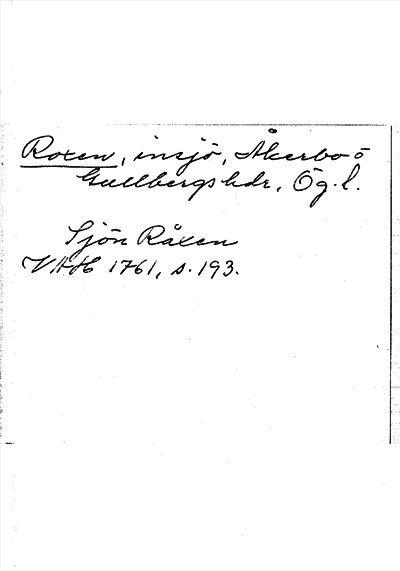 Roxen, insjö, Åkerbo o
Gullbergs hdr, Ög. l.
Sjön Råxen
VAH 1761, s. 193.